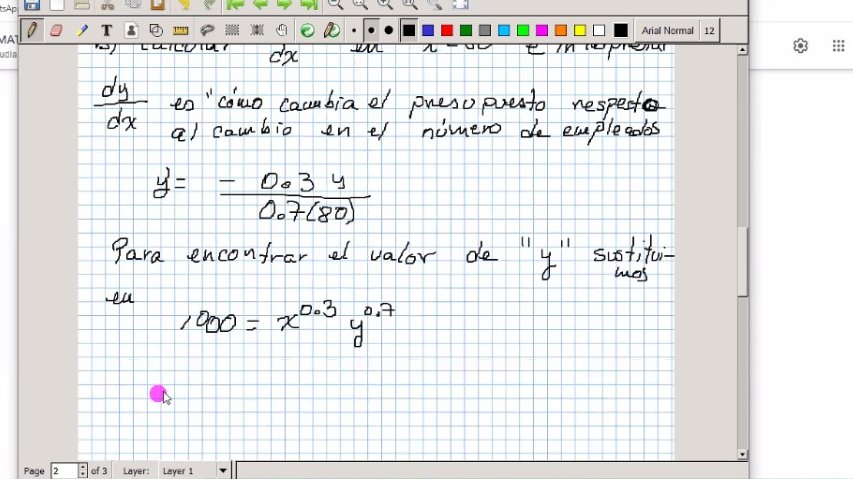 Arial Normal 12
b) calcular dy/dx en x=80 e interpretar
dy/dx es "cómo cambia el presupuesto respecto
al cambio en el número de empleados
y' = - 0.3 y / 0.7(80)
Para encontrar el valor de "y" sustitui-
mos
en
1000 = x^0.3 y^0.7
Page 2 of 3 Layer: Layer 1